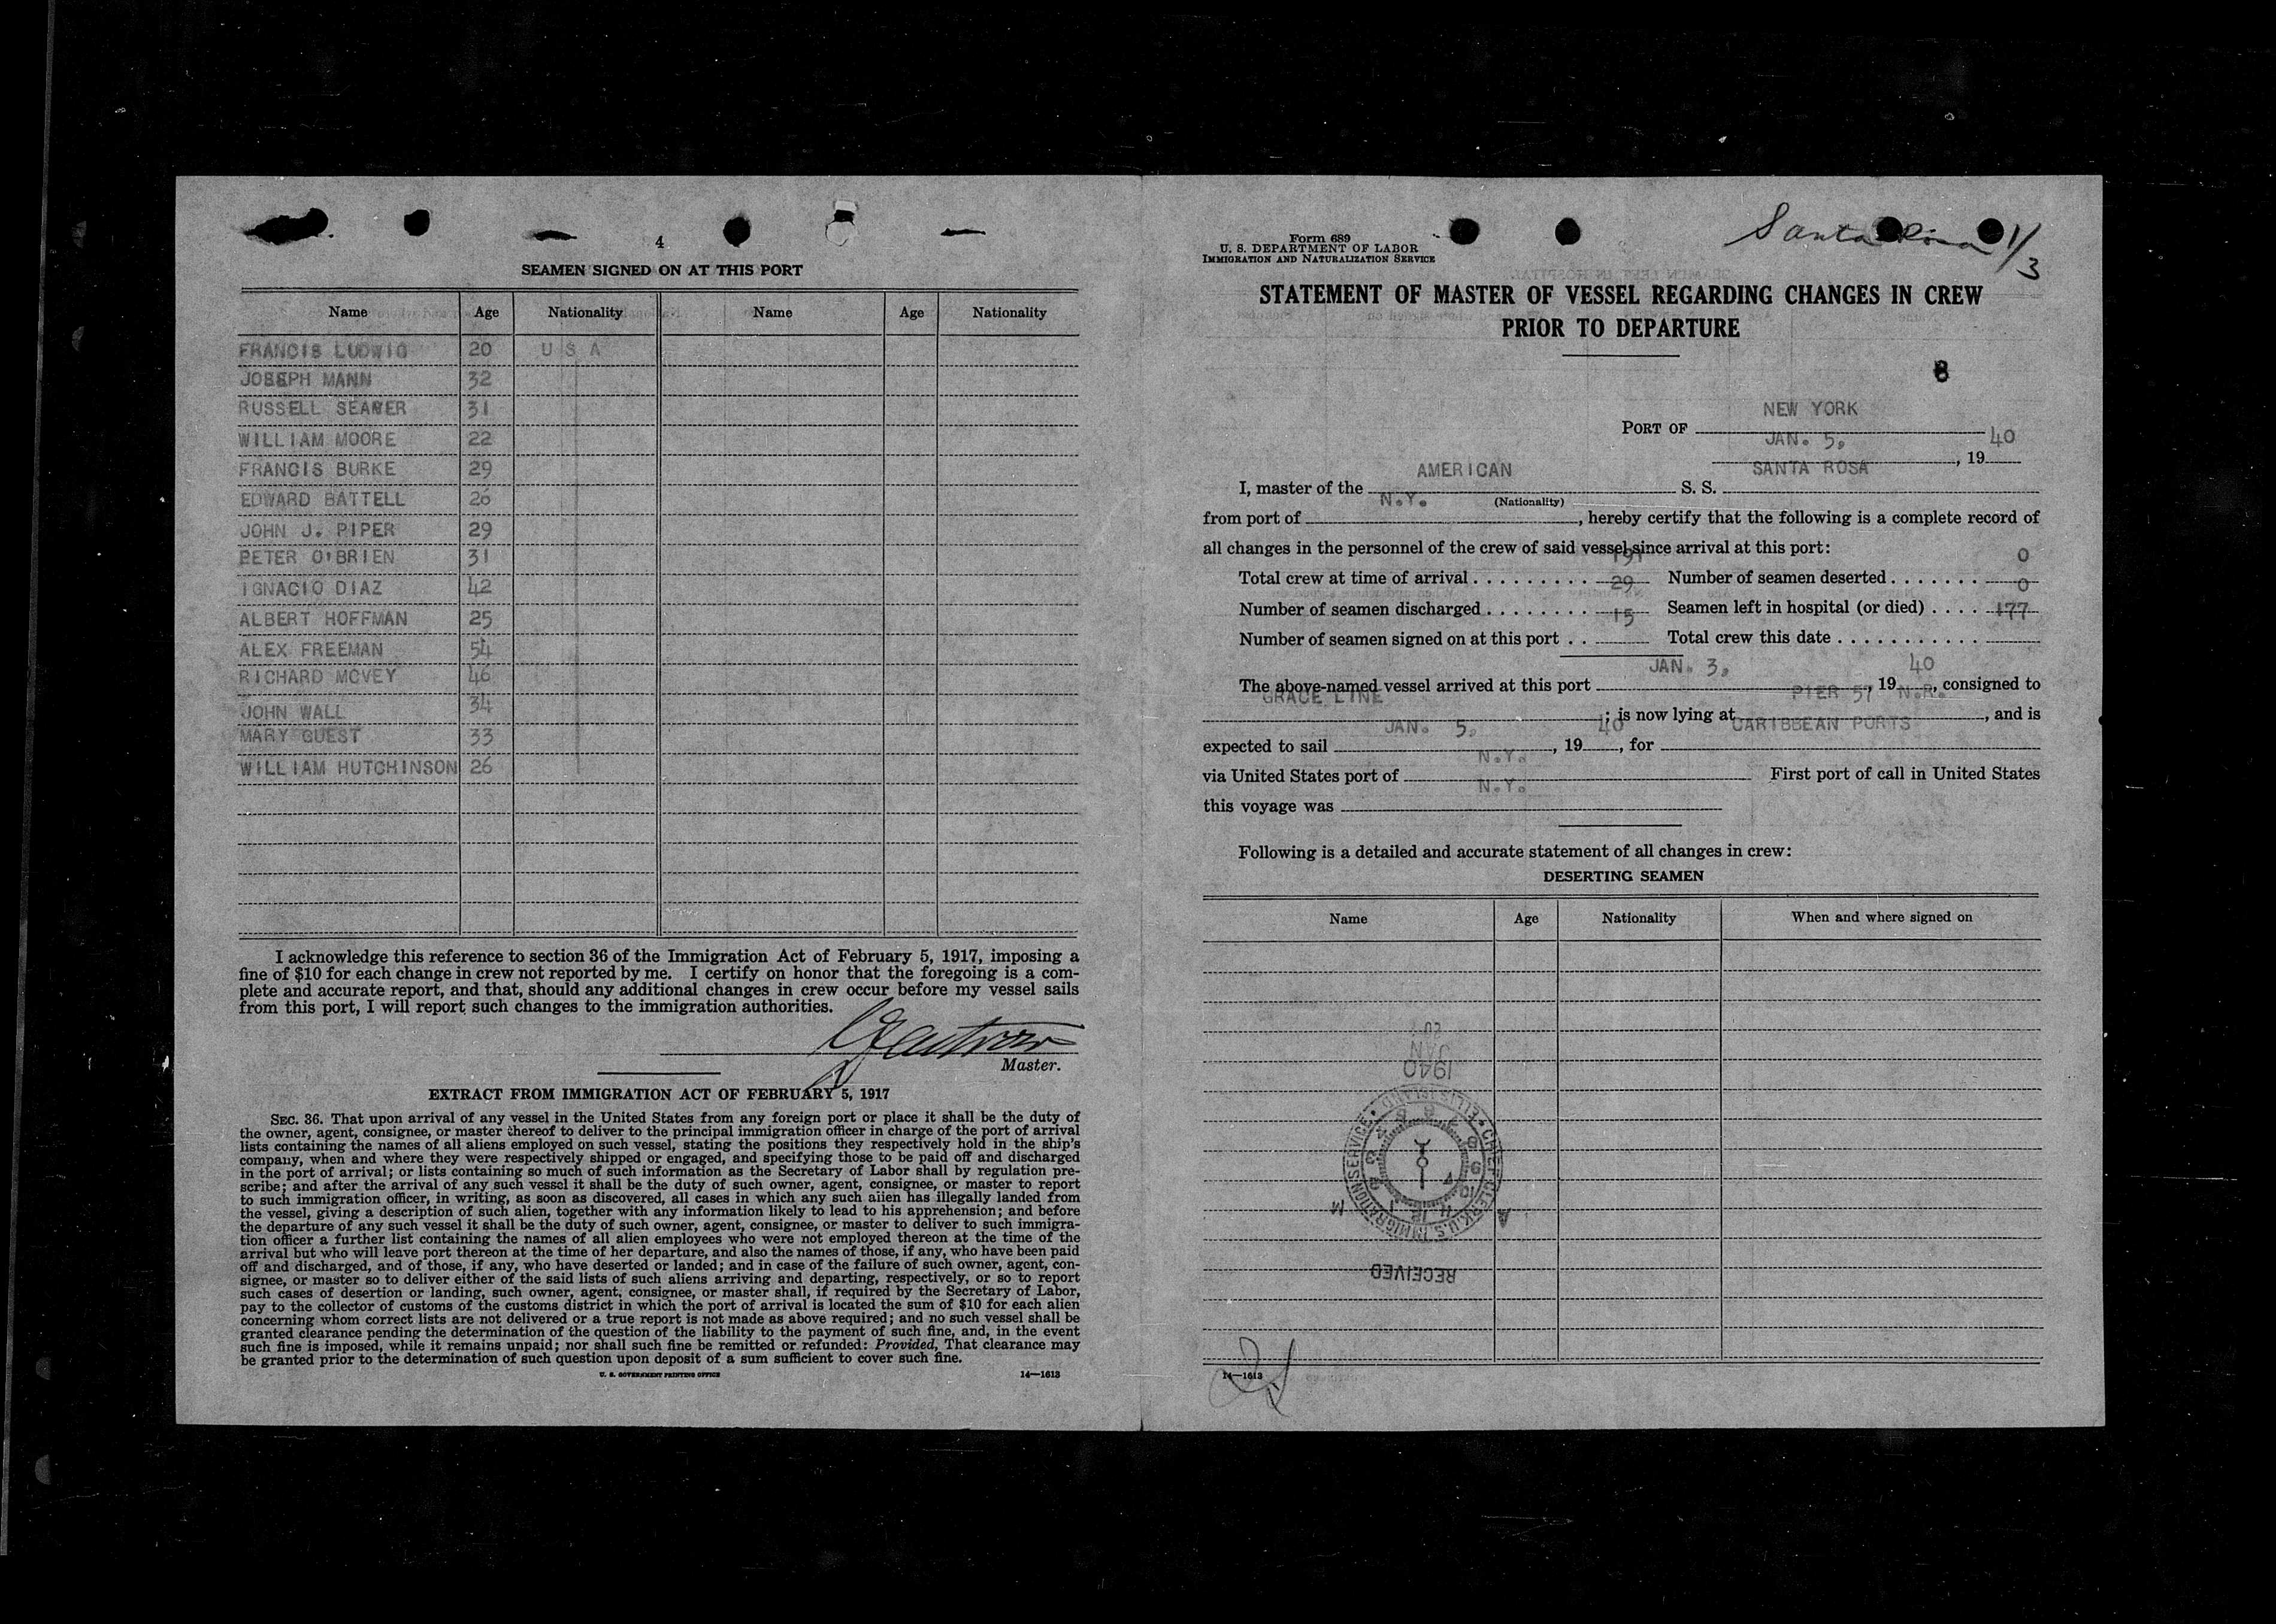 4
SEAMEN SIGNED ON AT THIS PORT
Name Age Nationality Name Age Nationality
FRANCIS LUDWIG 20 U S A
JOSEPH MANN 32
RUSSELL SEAVER 31
WILLIAM MOORE 22
FRANCIS BURKE 29
EDWARD BATTELL 26
JOHN J. PIPER 29
PETER O'BRIEN 31
IGNACIO DIAZ 42
ALBERT HOFFMAN 25
ALEX FREEMAN 54
RICHARD MCVEY 46
JOHN WALL 34
MARY GUEST 33
WILLIAM HUTCHINSON 26
I acknowledge this reference to section 36 of the Immigration Act of February 5, 1917, imposing a
fine of $10 for each change in crew not reported by me. I certify on honor that the foregoing is a com-
plete and accurate report, and that, should any additional changes in crew occur before my vessel sails
from this port, I will report such changes to the immigration authorities.
Master.
EXTRACT FROM IMMIGRATION ACT OF FEBRUARY 5, 1917
SEC. 36. That upon arrival of any vessel in the United States from any foreign port or place it shall be the duty of
the owner, agent, consignee, or master thereof to deliver to the principal immigration officer in charge of the port of arrival
lists containing the names of all aliens employed on such vessel, stating the positions they respectively hold in the ship's
company, when and where they were respectively shipped or engaged, and specifying those to be paid off and discharged
in the port of arrival; or lists containing so much of such information as the Secretary of Labor shall by regulation pre-
scribe; and after the arrival of any such vessel it shall be the duty of such owner, agent, consignee, or master to report
to such immigration officer, in writing, as soon as discovered, all cases in which any such alien has illegally landed from
the vessel, giving a description of such alien, together with any information likely to lead to his apprehension; and before
the departure of any such vessel it shall be the duty of such owner, agent, consignee, or master to deliver to such immigra-
tion officer a further list containing the names of all alien employees who were not employed thereon at the time of the
arrival but who will leave port thereon at the time of her departure, and also the names of those, if any, who have been paid
off and discharged, and of those, if any, who have deserted or landed; and in case of the failure of such owner, agent, con-
signee, or master so to deliver either of the said lists of such aliens arriving and departing, respectively, or so to report
such cases of desertion or landing, such owner, agent, consignee, or master shall, if required by the Secretary of Labor,
pay to the collector of customs of the customs district in which the port of arrival is located the sum of $10 for each alien
concerning whom correct lists are not delivered or a true report is not made as above required; and no such vessel shall be
granted clearance pending the determination of the question of the liability to the payment of such fine, and, in the event
such fine is imposed, while it remains unpaid; nor shall such fine be remitted or refunded: Provided, That clearance may
be granted prior to the determination of such question upon deposit of a sum sufficient to cover such fine.
U. S. GOVERNMENT PRINTING OFFICE 14—1613
Form 689
U. S. DEPARTMENT OF LABOR
IMMIGRATION AND NATURALIZATION SERVICE
Santa Rosa 1/3
STATEMENT OF MASTER OF VESSEL REGARDING CHANGES IN CREW
PRIOR TO DEPARTURE
8
PORT OF NEW YORK
JAN. 5, 1940
I, master of the AMERICAN S. S. SANTA ROSA
(Nationality)
from port of N.Y., hereby certify that the following is a complete record of
all changes in the personnel of the crew of said vessel since arrival at this port:
Total crew at time of arrival 191 Number of seamen deserted 0
Number of seamen discharged 29 Seamen left in hospital (or died) 0
Number of seamen signed on at this port 15 Total crew this date 177
The above-named vessel arrived at this port JAN. 3, 1940, consigned to
GRACE LINE; is now lying at PIER 57 N.R., and is
expected to sail JAN. 5, 1940, for CARIBBEAN PORTS
via United States port of N.Y. First port of call in United States
this voyage was N.Y.
Following is a detailed and accurate statement of all changes in crew:
DESERTING SEAMEN
Name Age Nationality When and where signed on
RECEIVED
CHIEF CLERK U.S. IMMIGRATION SERVICE • ELLIS ISLAND •
1940
JAN
14—1613